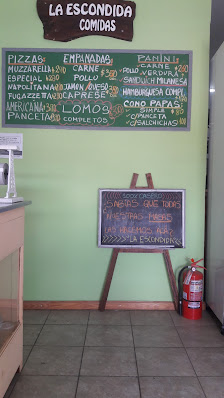 LA ESCONDIDA
COMIDAS
PIZZAS:
MUZZARELLA
ESPECIAL
NAPOLITANA
FUGAZZETTA
AMERICANA
PANCETA
EMPANADAS:
CARNE
POLLO
JAMON, QUESO
CAPRESE
LOMOS
COMPLETOS
PANINI:
CARNE
POLLO VERDURA
SANDWICH MILANESA
HAMBURGUESA COMPL.
CONO PAPAS
SIMPLE
C/PANCETA
C/SALCHICHAS
SABIAS QUE TODAS
NUESTRAS MASAS
LAS HACEMOS ACA
LA ESCONDIDA